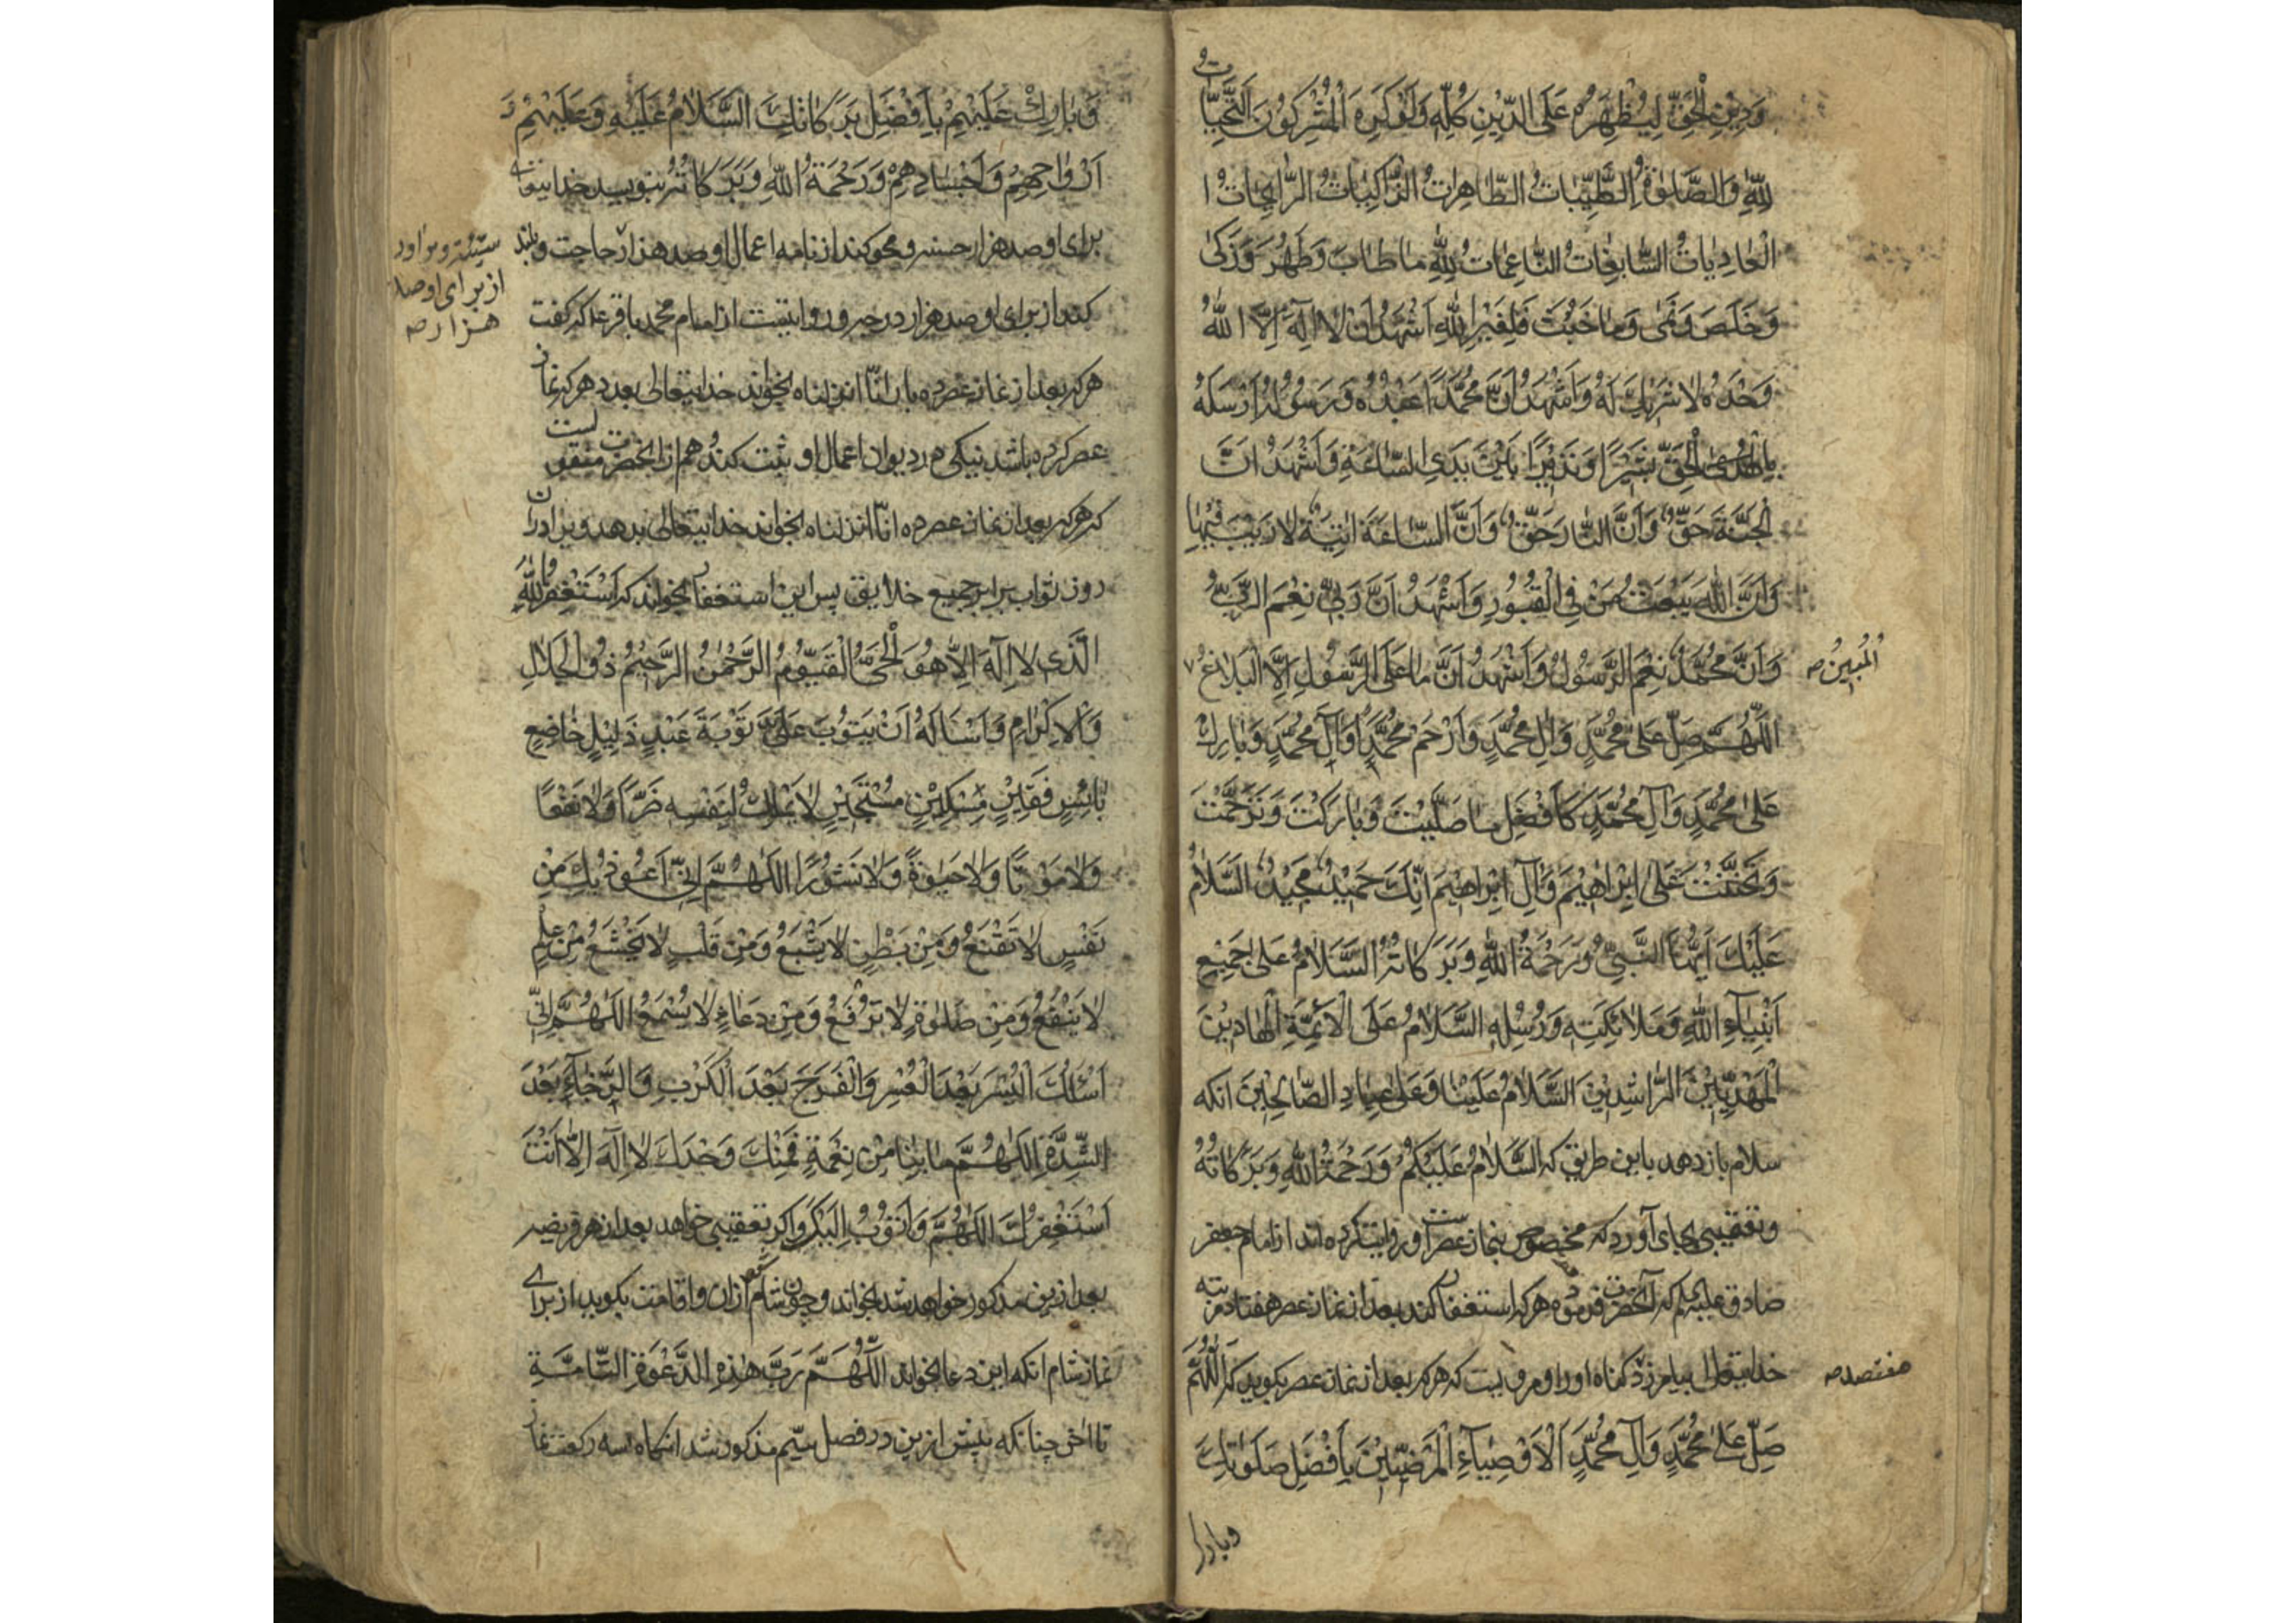 وَدِيْنِ الْحَقِّ لِيُظْهِرَهُ عَلَى الدِّيْنِ كُلِّهٖ وَلَوْ كَرِهَ الْمُشْرِكُوْنَ اَلتَّحِيَّاتُ
لِلّٰهِ وَالصَّلَوٰةُ الطَّيِّبَاتُ الطَّاهِرَاتُ الزَّاكِيَاتُ الرَّايِحَاتُ ا
لْغَادِيَاتُ السَّابِغَاتُ النَّاعِمَاتُ لِلّٰهِ مَا طَابَ وَطَهُرَ وَزَكٰى
وَخَلَصَ وَنَمٰى وَمَا خَبُثَ فَلِغَيْرِ اللّٰهِ اَشْهَدُ اَنْ لَا اِلٰهَ اِلَّا اللّٰهُ
وَحْدَهُ لَا شَرِيْكَ لَهُ وَاَشْهَدُ اَنَّ مُحَمَّدًا عَبْدُهُ وَرَسُوْلُهُ اَرْسَلَهُ
بِالْحَقِّ بَشِيْرًا وَنَذِيْرًا بَيْنَ يَدَيِ السَّاعَةِ وَاَشْهَدُ اَنَّ
الْجَنَّةَ حَقٌّ وَاَنَّ النَّارَ حَقٌّ وَاَنَّ السَّاعَةَ اٰتِيَةٌ لَا رَيْبَ فِيْهَا
وَاَنَّ اللّٰهَ يَبْعَثُ مَنْ فِي الْقُبُوْرِ وَاَشْهَدُ اَنَّ رَبِّيْ نِعْمَ الرَّبُّ
وَاَنَّ مُحَمَّدًا نِعْمَ الرَّسُوْلُ وَاَشْهَدُ اَنَّ مَا عَلَى الرَّسُوْلِ اِلَّا الْبَلَاغُ
الْمُبِيْنُ صه
اَللّٰهُمَّ صَلِّ عَلٰى مُحَمَّدٍ وَاٰلِ مُحَمَّدٍ وَارْحَمْ مُحَمَّدًا وَاٰلَ مُحَمَّدٍ وَبَارِكْ
عَلٰى مُحَمَّدٍ وَاٰلِ مُحَمَّدٍ كَاَفْضَلِ مَا صَلَّيْتَ وَبَارَكْتَ وَتَرَحَّمْتَ
وَتَحَنَّنْتَ عَلٰى اِبْرَاهِيْمَ وَاٰلِ اِبْرَاهِيْمَ اِنَّكَ حَمِيْدٌ مَجِيْدٌ السَّلَامُ
عَلَيْكَ اَيُّهَا النَّبِيُّ وَرَحْمَةُ اللّٰهِ وَبَرَكَاتُهُ السَّلَامُ عَلٰى جَمِيْعِ
اَنْبِيَاءِ اللّٰهِ وَمَلَائِكَتِهٖ وَرُسُلِهِ السَّلَامُ عَلَى الْاَئِمَّةِ الْهَادِيْنَ
الْمَهْدِيِّيْنَ الرَّاشِدِيْنَ السَّلَامُ عَلَيْنَا وَعَلٰى عِبَادِ الصَّالِحِيْنَ انكه
سلام باز دهد باين طريق كه السَّلَامُ عَلَيْكُمْ وَرَحْمَةُ اللّٰهِ وَبَرَكَاتُهُ
وتعقيبى بجاى آورد كه مخصوص بنماز عصراست و روايت كرده اند از امام جعفر
صادق عليه كه آنحضرت فرموده هركه استغفار كند بعد از نماز عصر هفتاد مرتبه
خدايتعالى بيامرزد كناه او را و مرويست كه هركه بعد از نماز عصر بكويد كه اَللّٰهُمَّ
هفتصد صه
صَلِّ عَلٰى مُحَمَّدٍ وَاٰلِ مُحَمَّدٍ اَلْاَوْصِيَاءِ الْمَرْضِيِّيْنَ بِاَفْضَلِ صَلَوَاتِكَ
وبارك
وَبَارِكْ عَلَيْهِمْ بِاَفْضَلِ بَرَكَاتِكَ السَّلَامُ عَلَيْهِ وَعَلَيْهِمْ وَ
اَرْوَاحِهِمْ وَاَجْسَادِهِمْ وَرَحْمَةُ اللّٰهِ وَبَرَكَاتُهُ بنويسد خدايتعالى
براى او صد هزار حسنه و محو كند از نامه اعمال او صد هزار حاجت و بلند
سيئه و بر اورد
از براى او صد
هزار صه
كند از براى او صد هزار درجه و روايتست از امام محمد باقر كه كفت
هركه بعد از نماز عصر ده بار انا انزلناه بخواند خدايتعالى بعدد هركه نماز
عصر كرده باشد نيكى در ديوان اعمال او ثبت كند و هم از آنحضرت منقولست
كه هركه بعد از نماز عصر ده انا انزلناه بخواند خدايتعالى بدهد ويرا دران
روز ثواب برابر جميع خلايق پس اين استغفار بخواند كه اَسْتَغْفِرُ اللّٰهَ
الَّذِى لَا اِلٰهَ اِلَّا هُوَ الْحَيُّ الْقَيُّوْمُ الرَّحْمٰنُ الرَّحِيْمُ ذُو الْجَلَالِ
وَالْاِكْرَامِ وَاَسْاَلُهُ اَنْ يَتُوْبَ عَلَيَّ تَوْبَةَ عَبْدٍ ذَلِيْلٍ خَاضِعٍ
بَائِسٍ فَقِيْرٍ مِسْكِيْنٍ مُسْتَجِيْرٍ لَا يَمْلِكُ لِنَفْسِهِ ضَرًّا وَلَا نَفْعًا
وَلَا مَوْتًا وَلَا حَيٰوةً وَلَا نُشُوْرًا اَللّٰهُمَّ اِنِّيْ اَعُوْذُ بِكَ مِنْ
نَفْسٍ لَا تَقْنَعُ وَمِنْ بَطْنٍ لَا يَشْبَعُ وَمِنْ قَلْبٍ لَا يَخْشَعُ وَمِنْ عِلْمٍ
لَا يَنْفَعُ وَمِنْ صَلٰوةٍ لَا تُرْفَعُ وَمِنْ دُعَاءٍ لَا يُسْمَعُ اَللّٰهُمَّ اِنِّيْ
اَسْئَلُكَ الْيُسْرَ بَعْدَ الْعُسْرِ وَالْفَرَجَ بَعْدَ الْكَرْبِ وَالرَّخَاءَ بَعْدَ
الشِّدَّةِ اَللّٰهُمَّ مَا بِنَا مِنْ نِعْمَةٍ فَمِنْكَ وَحْدَكَ لَا اِلٰهَ اِلَّا اَنْتَ
اَسْتَغْفِرُكَ اَللّٰهُمَّ وَاَتُوْبُ اِلَيْكَ و اكر تعقيبى خواهد بعد از هر فريضه
بعد ازين مذكور خواهد شد بخواند و چون شام شود اذان واقامت بكويد از براى
نماز شام انكه اين دعا بخواند اَللّٰهُمَّ رَبَّ هٰذِهِ الدَّعْوَةِ التَّامَّةِ
تا اخر چنانكه پيش ازين در فصل سيم مذكور شد انكاه سه ركعت نماز